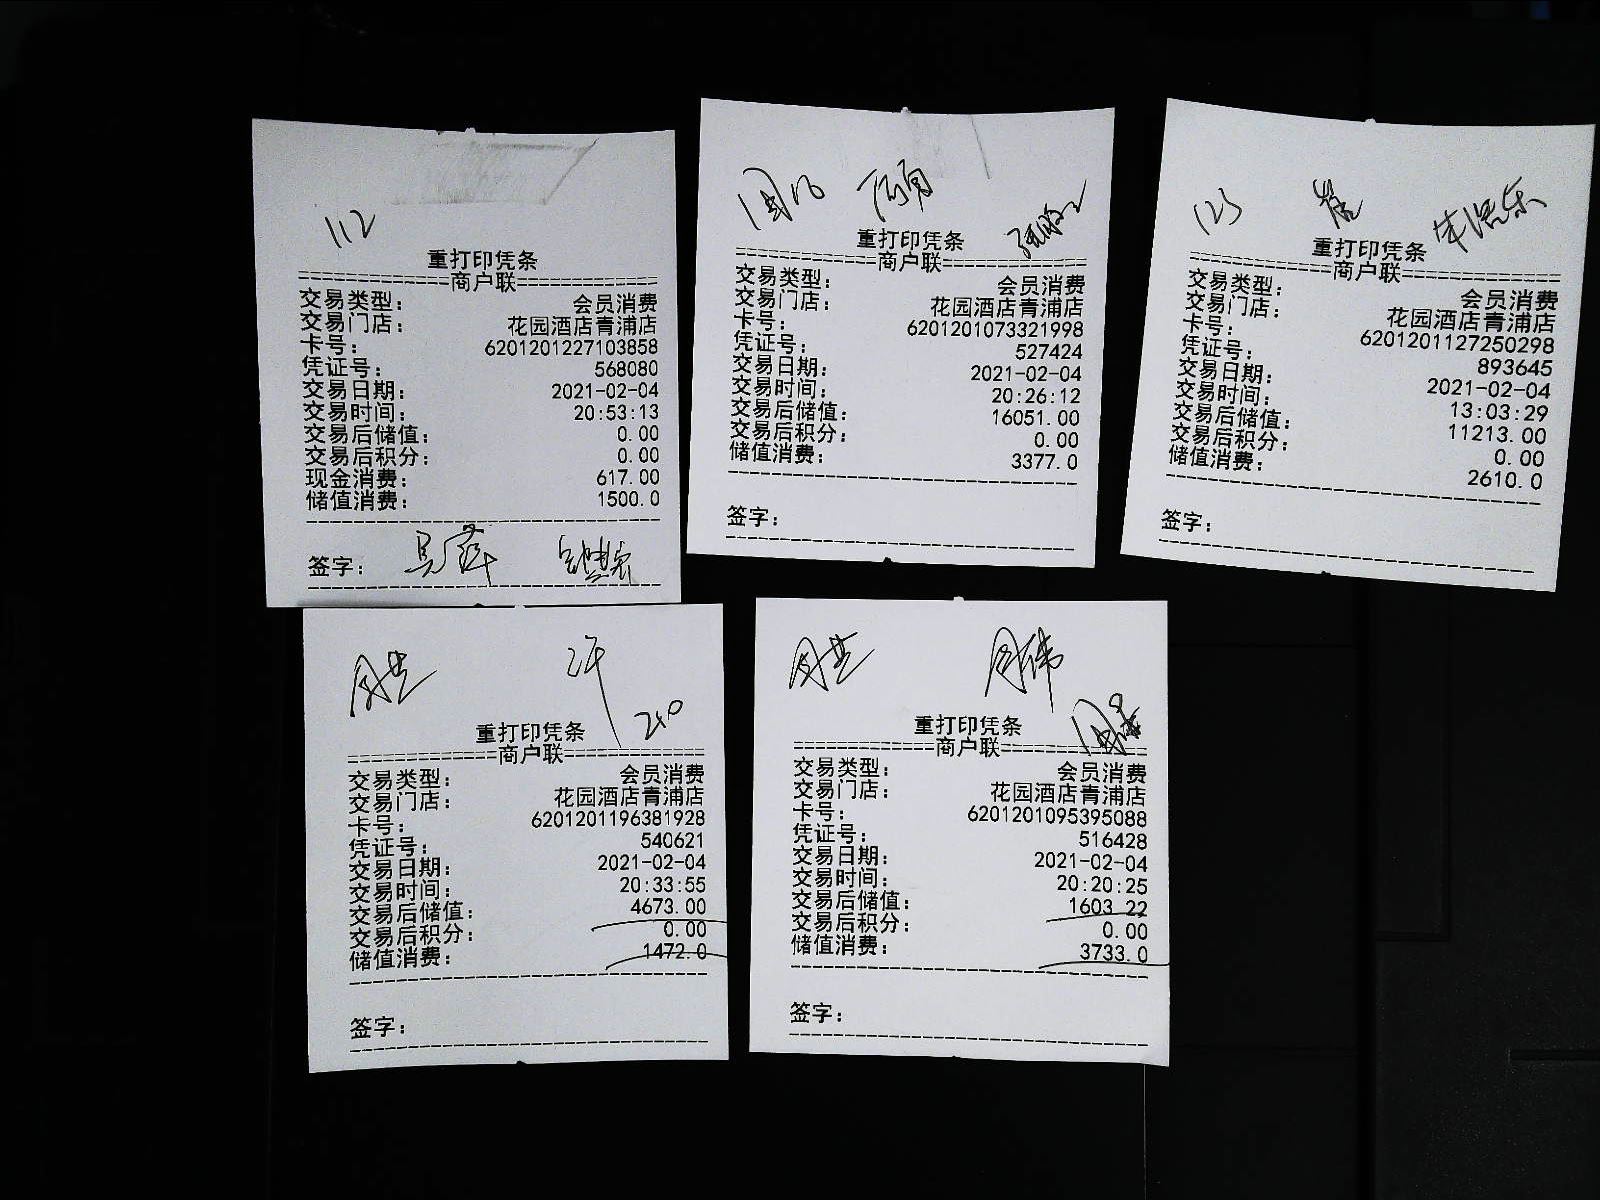 112
重打印凭条
商户联
交易类型: 会员消费
交易门店: 花园酒店青浦店
卡号: 6201201227103858
凭证号: 568080
交易日期: 2021-02-04
交易时间: 20:53:13
交易后储值: 0.00
交易后积分: 0.00
现金消费: 617.00
储值消费: 1500.0
签字:
重打印凭条
商户联
交易类型: 会员消费
交易门店: 花园酒店青浦店
卡号: 6201201073321998
凭证号: 527424
交易日期: 2021-02-04
交易时间: 20:26:12
交易后储值: 16051.00
交易后积分: 0.00
储值消费: 3377.0
签字:
123
重打印凭条
商户联
交易类型: 会员消费
交易门店: 花园酒店青浦店
卡号: 6201201127250298
凭证号: 893645
交易日期: 2021-02-04
交易时间: 13:03:29
交易后储值: 11213.00
交易后积分: 0.00
储值消费: 2610.0
签字:
重打印凭条
商户联
交易类型: 会员消费
交易门店: 花园酒店青浦店
卡号: 6201201196381928
凭证号: 540621
交易日期: 2021-02-04
交易时间: 20:33:55
交易后储值: 4673.00
交易后积分: 0.00
储值消费: 1472.0
签字:
重打印凭条
商户联
交易类型: 会员消费
交易门店: 花园酒店青浦店
卡号: 6201201095395088
凭证号: 516428
交易日期: 2021-02-04
交易时间: 20:20:25
交易后储值: 1603.22
交易后积分: 0.00
储值消费: 3733.0
签字: